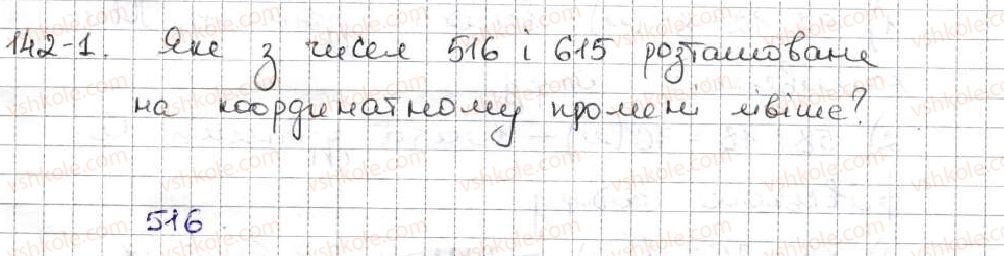 142-1. Яке з чисел 516 і 615 розташоване
на координатному промені лівіше?
516